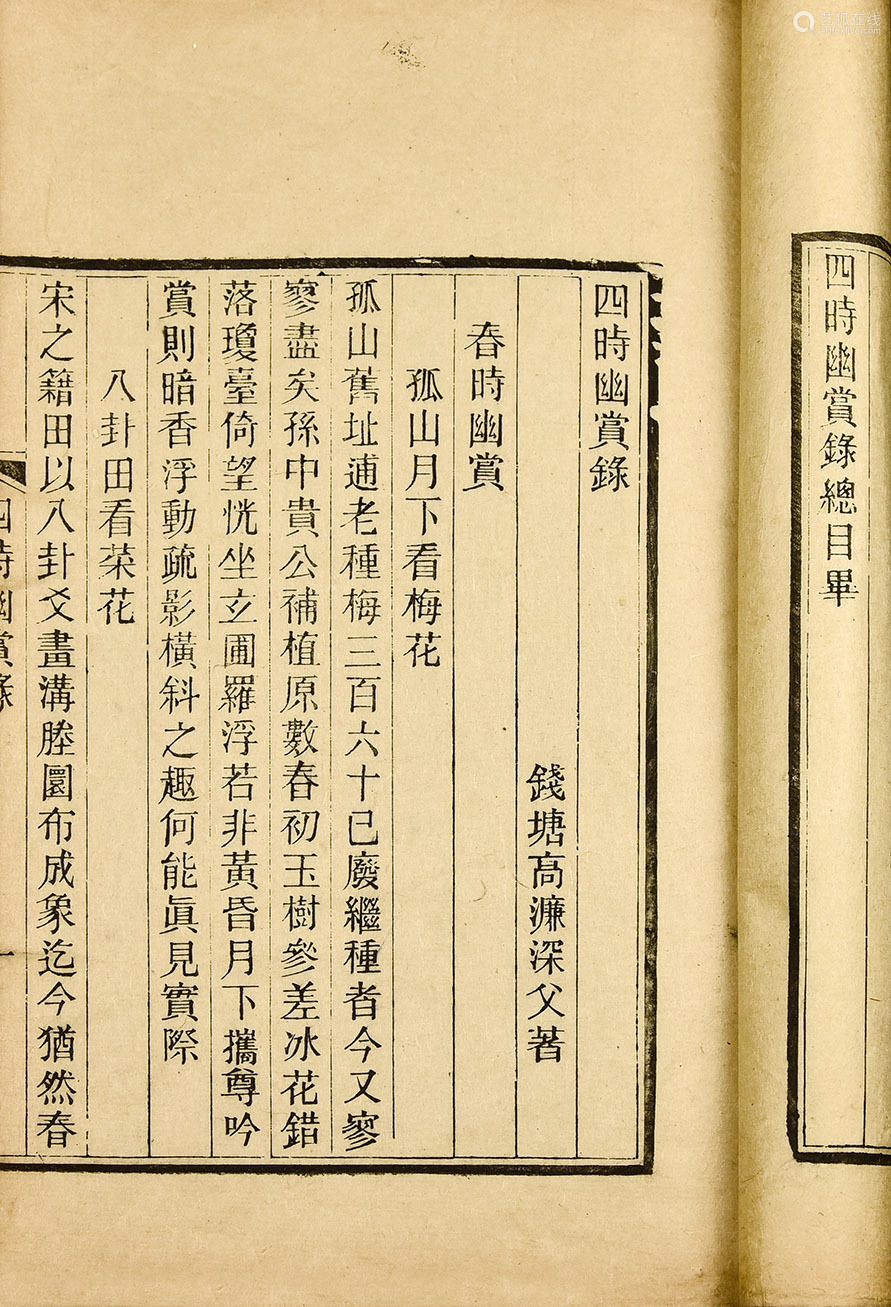 四時幽賞錄總目畢
四時幽賞錄
錢塘高濂深父著
春時幽賞
孤山月下看梅花
孤山舊址逋老種梅三百六十已廢繼種者今又寥
寥盡矣孫中貴公補植原數春初玉樹參差冰花錯
落瓊臺倚望恍坐玄圃羅浮若非黃昏月下攜尊吟
賞則暗香浮動疏影橫斜之趣何能眞見實際
八卦田看菜花
宋之籍田以八卦爻畫溝塍圜布成象迄今猶然春
四時幽賞錄
一